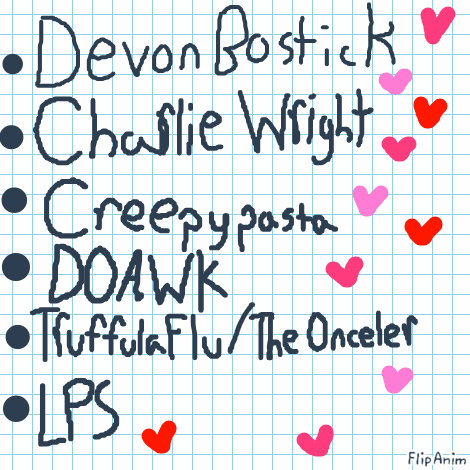 Devon Bostick
Charlie Wright
Creepypasta
DOAWK
TruffulaFlu/The Onceler
LPS
FlipAnim